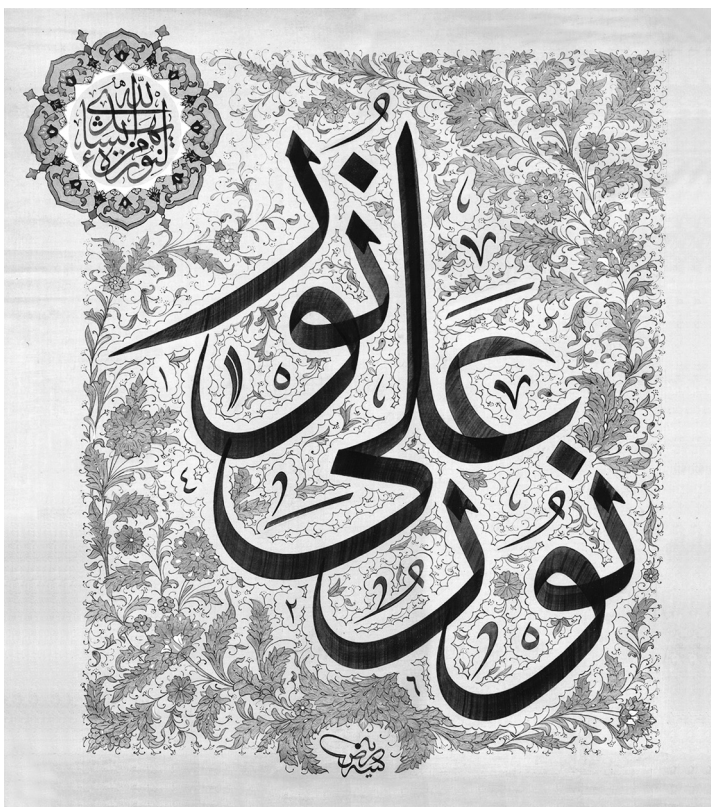 يهدي الله لنوره من يشاء
نور على نور
١٤٢٦